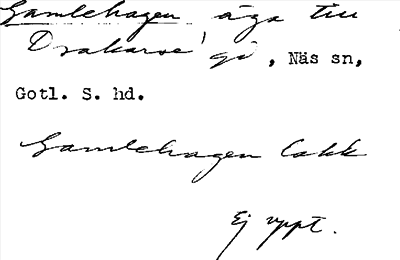 Gamlehagen äga till
Drakarve gd, Näs sn,
Gotl. S. hd.
Gamlehagen
Ej uppt.